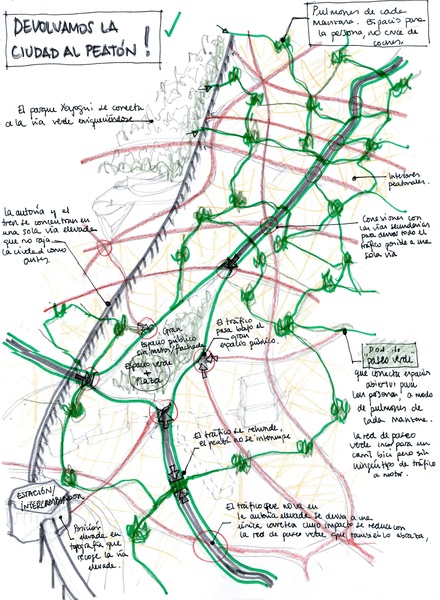 DEVOLVAMOS LA
CIUDAD AL PEATÓN!
Pulmones de cada
manzana. Espacio para
la persona, no cruce de
coches.
El parque Yoyogui se conecta
a la vía verde enriqueciéndose
Interiores
peatonales.
la autovía y el
tren se concentran en
una sola vía elevada
que no raja
la ciudad como
antes.
Conexiones con
las vías secundarias
para derivar todo el
tráfico posible a una
sola vía
Gran
Espacio público
sin muros/fachadas
Espacio verde
+
Plaza
El tráfico
pasa bajo el
gran
espacio público.
Red de
paseo verde
que conecta espacios
abiertos para
las personas, a modo
de pulmones de
cada manzana.
la red de paseo
verde incorpora un
carril bici pero sin
ningún tipo de tráfico
a motor.
El tráfico se rehunde,
el peatón no se interrumpe
ESTACIÓN/
INTERCAMBIADOR
Posición
elevada en
topografía que
recoge la vía
elevada.
El tráfico que no va en
la autovía elevada se desvía a una
única carretera cuyo impacto se reduce con
la red de paseo verde que también lo abraza,